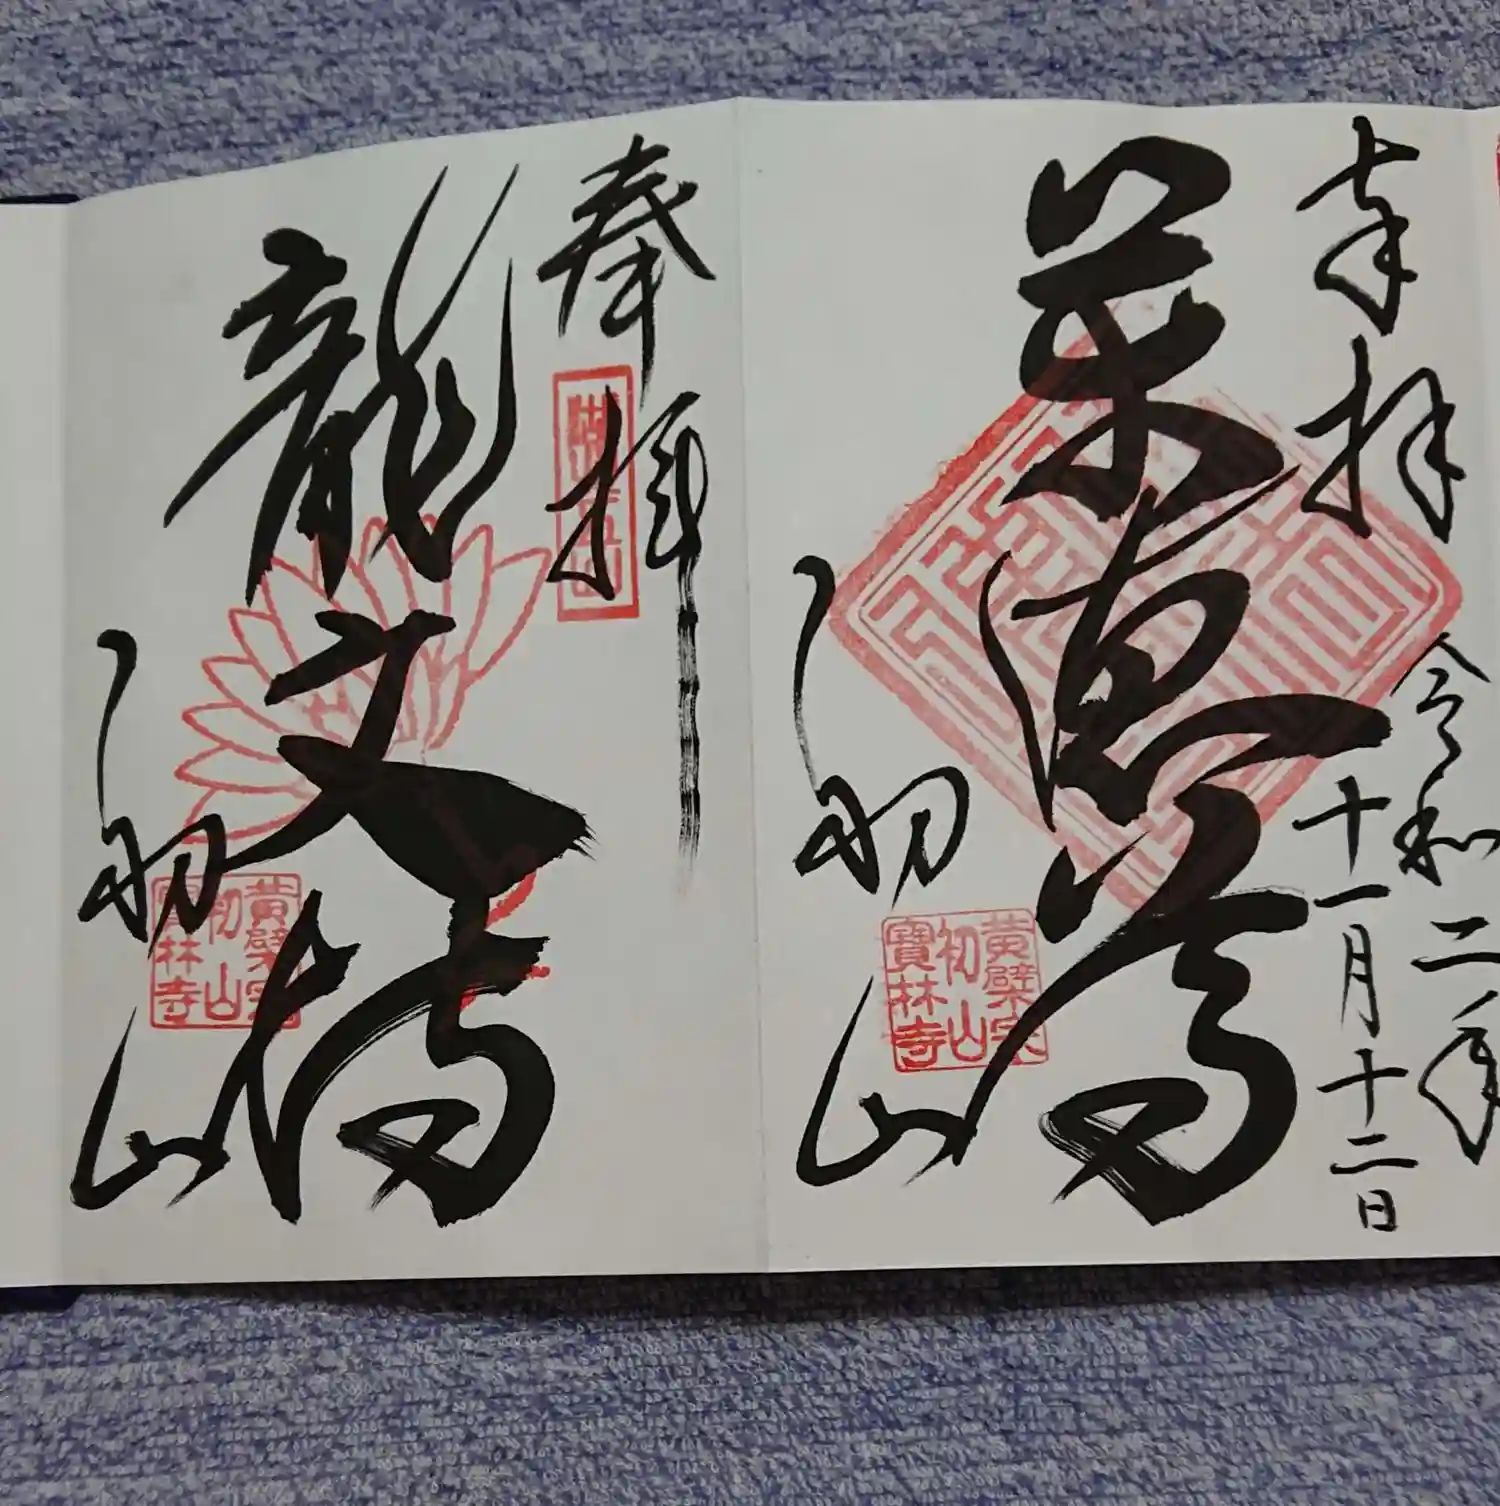 奉拝
令和二年
十一月十二日
萬徳尊
初山
黄檗宗
初山
寶林寺
奉拝
龍文
初山
黄檗宗
初山
寶林寺